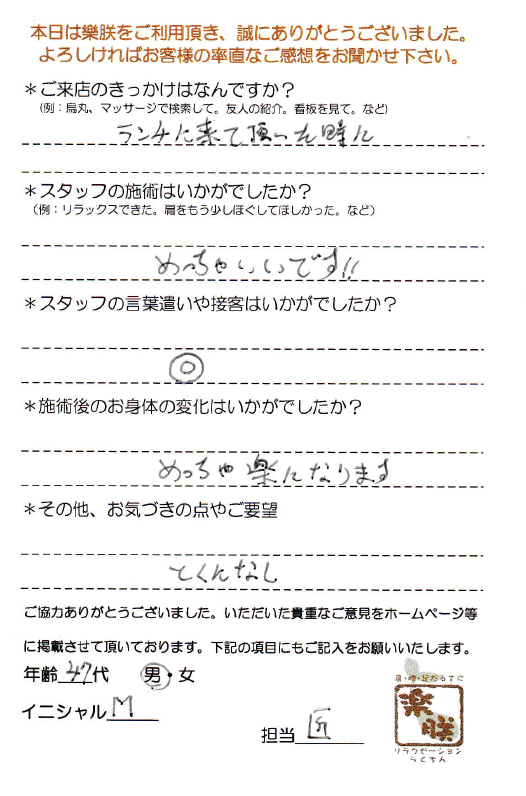 本日は樂朕をご利用頂き、誠にありがとうございました。
よろしければお客様の率直なご感想をお聞かせ下さい。
＊ご来店のきっかけはなんですか？
（例：烏丸、マッサージで検索して。友人の紹介。看板を見て。など）
ランチに来て頂いた時に
＊スタッフの施術はいかがでしたか？
（例：リラックスできた。肩をもう少しほぐしてほしかった。など）
めっちゃいいです!!
＊スタッフの言葉遣いや接客はいかがでしたか？
◎
＊施術後のお身体の変化はいかがでしたか？
めっちゃ楽になります
＊その他、お気づきの点やご要望
とくんなし
ご協力ありがとうございました。いただいた貴重なご意見をホームページ等
に掲載させて頂いております。下記の項目にもご記入をお願いいたします。
年齢 47代 男・女
イニシャル M
担当 匠
楽朕
リラクゼーション
らくちん